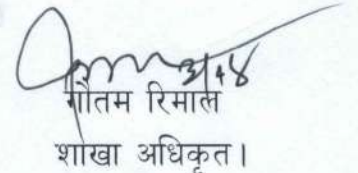 गौतम रिमाल
शाखा अधिकृत।